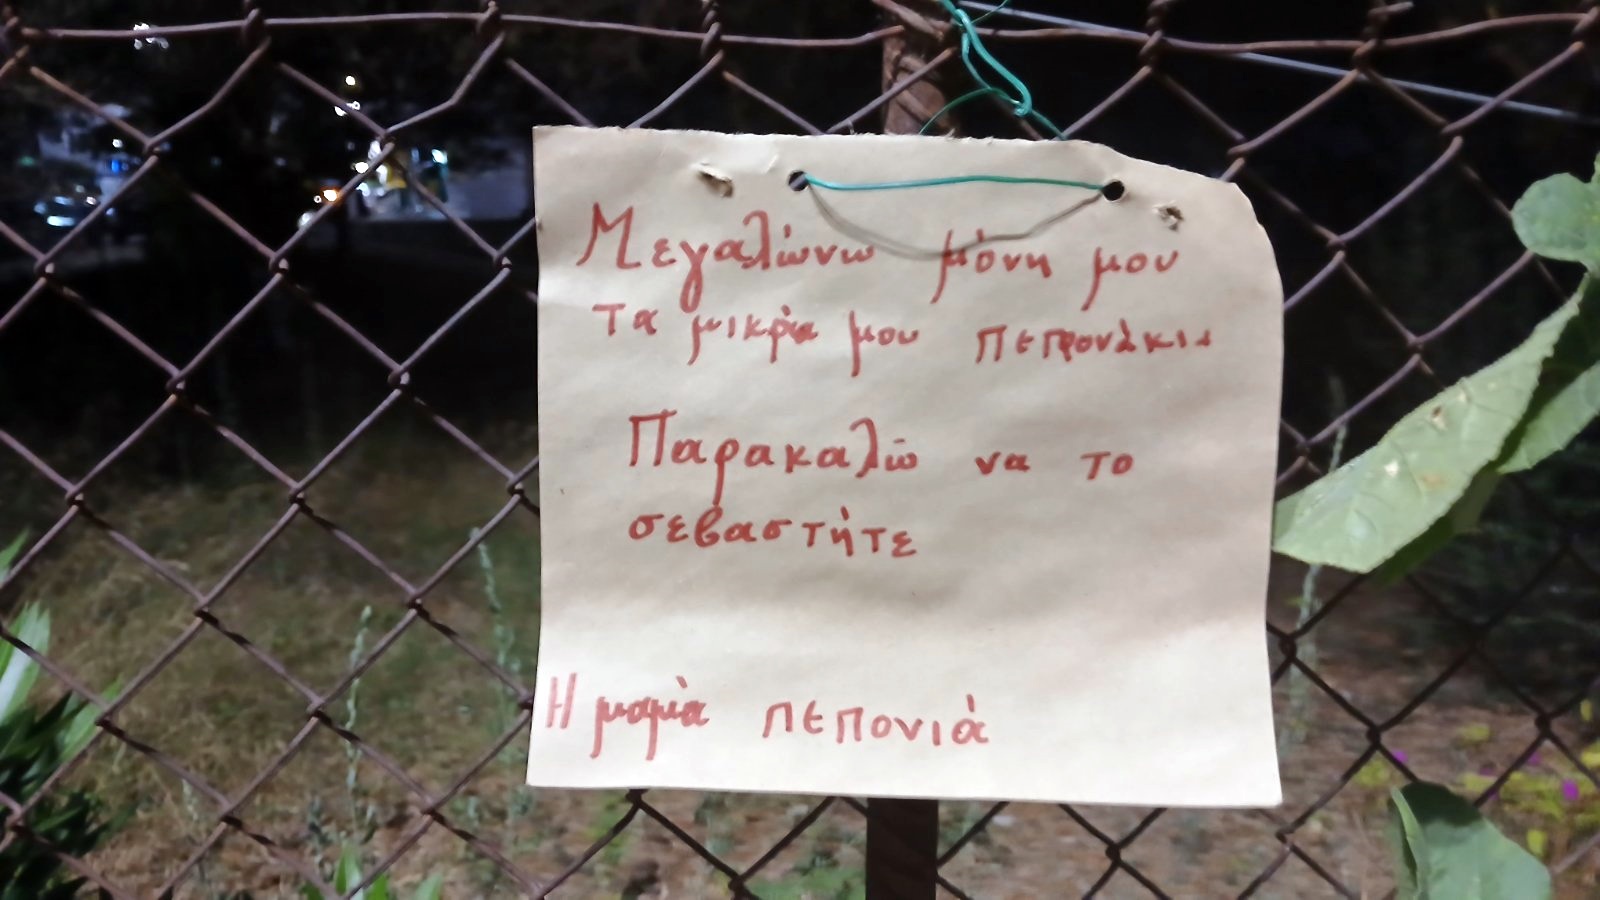 Μεγαλώνω μόνη μου
τα μικρά μου πεπονάκια
Παρακαλώ να το
σεβαστήτε
Η μαμά πεπονιά